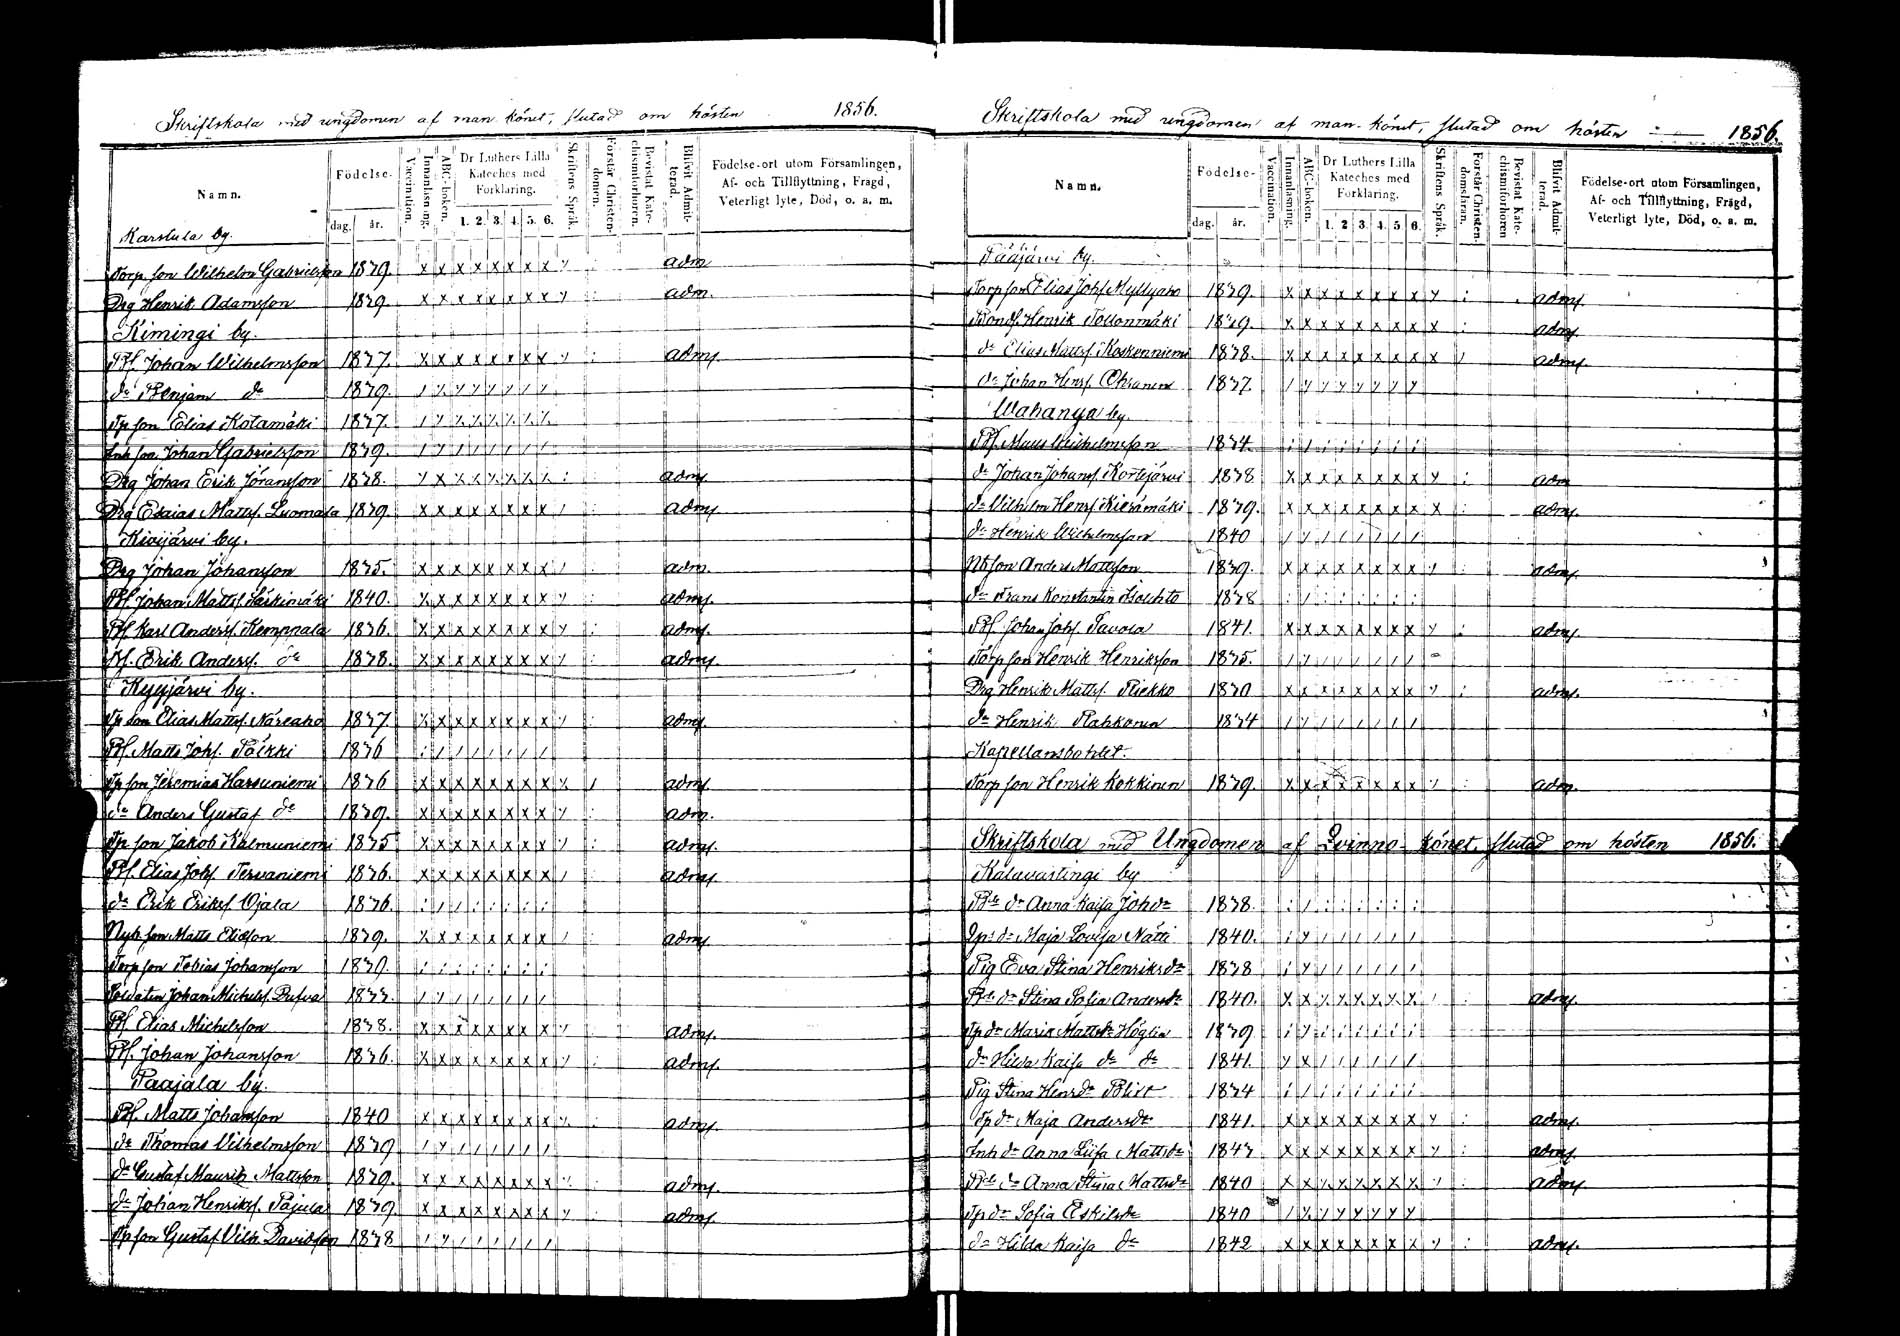 Skriftskola med ungdomen af man könet, slutad om hösten 1856.
Namn. Födelse- dag. år. Vaccination. Innanläsning. ABC-boken. Dr Luthers Lilla Kateches med Förklaring. 1. 2. 3. 4. 5. 6. Skriftens Språk. Förstår Christendomen. Bevistat Katechismiförhören. Blifvit Admitterad. Födelse-ort utom Församlingen, Af- och Tillflyttning, Frägd, Veterligt lyte, Död, o. a. m.
Karstula by.
Torp son Wilhelm Gabrielsson 1839. x x x x x x x x y adm
Drg Henrik Adamsson 1839. x x x x x x x x y adm.
Kimingi by.
Bf. Johan Wilhelmsson 1837. x x x x x x x x y : adm.
do Benjam do 1839. / y y y y / / /
Tp son Elias Kotamäki 1837. / y y y y y y y
Inh son Johan Gabrielsson 1839. / y / / / / / /
Drg Johan Erik Göransson 1838. y x x x y x x x : adm.
Drg Esaias Matts. Luomala 1839 x x x x x x x x / adm.
Kivijärvi by.
Drg Johan Johansson 1835. x x x x x x x x / adm.
Bf. Johan Matts. 1840. x x x x x x x x y : adm.
Bf. Karl Anderss. Kemppala 1836. x x x x x x x x y : adm.
Bf. Erik Anderss. do 1838. x x x x x x x x y : adm.
Kyyjärvi by.
Tp son Elias Matts. Näreaho 1837 x x x x x x x x y : adm.
Bf. Matts Johs. Pölkki 1836 : / / / / / / /
Tp son Jeremias Harsuniemi 1836 x x x x x x x x x / adm.
do Anders Gustaf do 1839. x x x x x x x x y : adm.
Tp son Jakob Kalmuniemi 1835 x x x x x x x x y : adm.
Bf. Elias Johs. Tervaniemi 1836. x x x x x x x x / : adm.
do Erik Eriks. Ojala 1836. : / / : : : : :
Nyb. son Matts Eliasson 1839. x x x x x x x x / : adm.
Torp son Tobias Johansson 1839. : : : : : : : :
Soldaten Johan Michels. Bufva 1833. / y / / / / / /
Bf. Elias Michelsson 1838. x x x x x x x x y : adm.
Bf. Johan Johansson 1836. x x x x x x x x y : adm.
Paajala by.
Bf. Matts Johansson 1840 x x x x x x x x y : adm.
do Thomas Wilhelmsson 1839 / y / / / / / /
do Gustaf Maurits Mattsson 1839. x x x x x x x x y : adm.
do Johan Henriks. Pajula 1839 x x x x x x x x y : adm.
Tp son Gustaf Vilh. Davidsson 1838 / y / / / / / /
Skriftskola med ungdomen af man könet, slutad om hösten 1856.
Namn. Födelse- dag. år. Vaccination. Innanläsning. ABC-boken. Dr Luthers Lilla Kateches med Förklaring. 1. 2 3. 4. 5 6. Skriftens Språk. Förstår Christendomsläran. Bevistat Katechismiförhören Blifvit Admitterad. Födelse-ort utom Församlingen, Af- och Tillflyttning, Frägd, Veterligt lyte, Död, o. a. m.
Pääjärvi by.
Torp son Elias Johs. Myllyaho 1839. x x x x x x x x y : adm.
Bonds. Henrik 1839. x x x x x x x x x : adm.
do Elias Matts. Koskenniemi 1838. x x x x x x x x x / adm.
do Johan Henrs. Oksanen 1837. / y y y y y y y
Wahanga by.
Bf. Wilhelmsson 1834. : / : : : : : :
do Johan Johans. Kortejärvi 1838 x x x x x x x x y : adm
do Wilhelm Henrs. Kierämäki 1839. x x x x x x x x x : adm.
do Henrik Wilhelmsson 1840 / y / / / / / /
Nb son Anders Mattsson 1839. x x x x x x x x y : adm.
do Frans Konstantin 1838 : / : : : : : :
Bf. Johan Johs. Savola 1841. x x x x x x x x y : adm.
Torp son Henrik Henriksson 1835. / y / / / / / /
Drg Henrik Matts. Riekko 1830 x x x x x x x x y : adm.
do Henrik Rahkonen 1834 / y / / / / / /
Kapellansbohlet.
Torp son Henrik Kokkinen 1839. x x x x x x x x y : adm.
Skriftskola med Ungdomen af Qvinno-könet, slutad om hösten 1856.
Kalavastingi by
Bde dr Anna Kaisa Johdr 1838. : / : : : : : :
Tp dr Maja Lovisa Nätti 1840. : y / / / / / /
Pig Eva Stina Henriksdr 1838 i y / / / / / /
Bde dr Stina Sofia Andersdr 1840. x x y y y y y y / : adm.
Tp dr Maria Mattsdr Höglin 1839 i y i i i i i i
dr Hilda Kaisa dr dr 1841. y x / / / / / /
Pig Stina Henrsdr Blixt 1834 i / i i i i i i
Tp dr Maja Andersdr 1841. x x x x x x x x y : adm.
Inh dr Anna Liisa Mattsdr 1843 x x x x x x x x y : adm.
Bde dr Anna Stina Mattsdr 1840 x x y x x x x x y : adm.
Tp dr Sofia Eskilsdr 1840 / y y y y y y y
dr Hilda Kaisa dr 1842 x x x x x x x x y : adm.